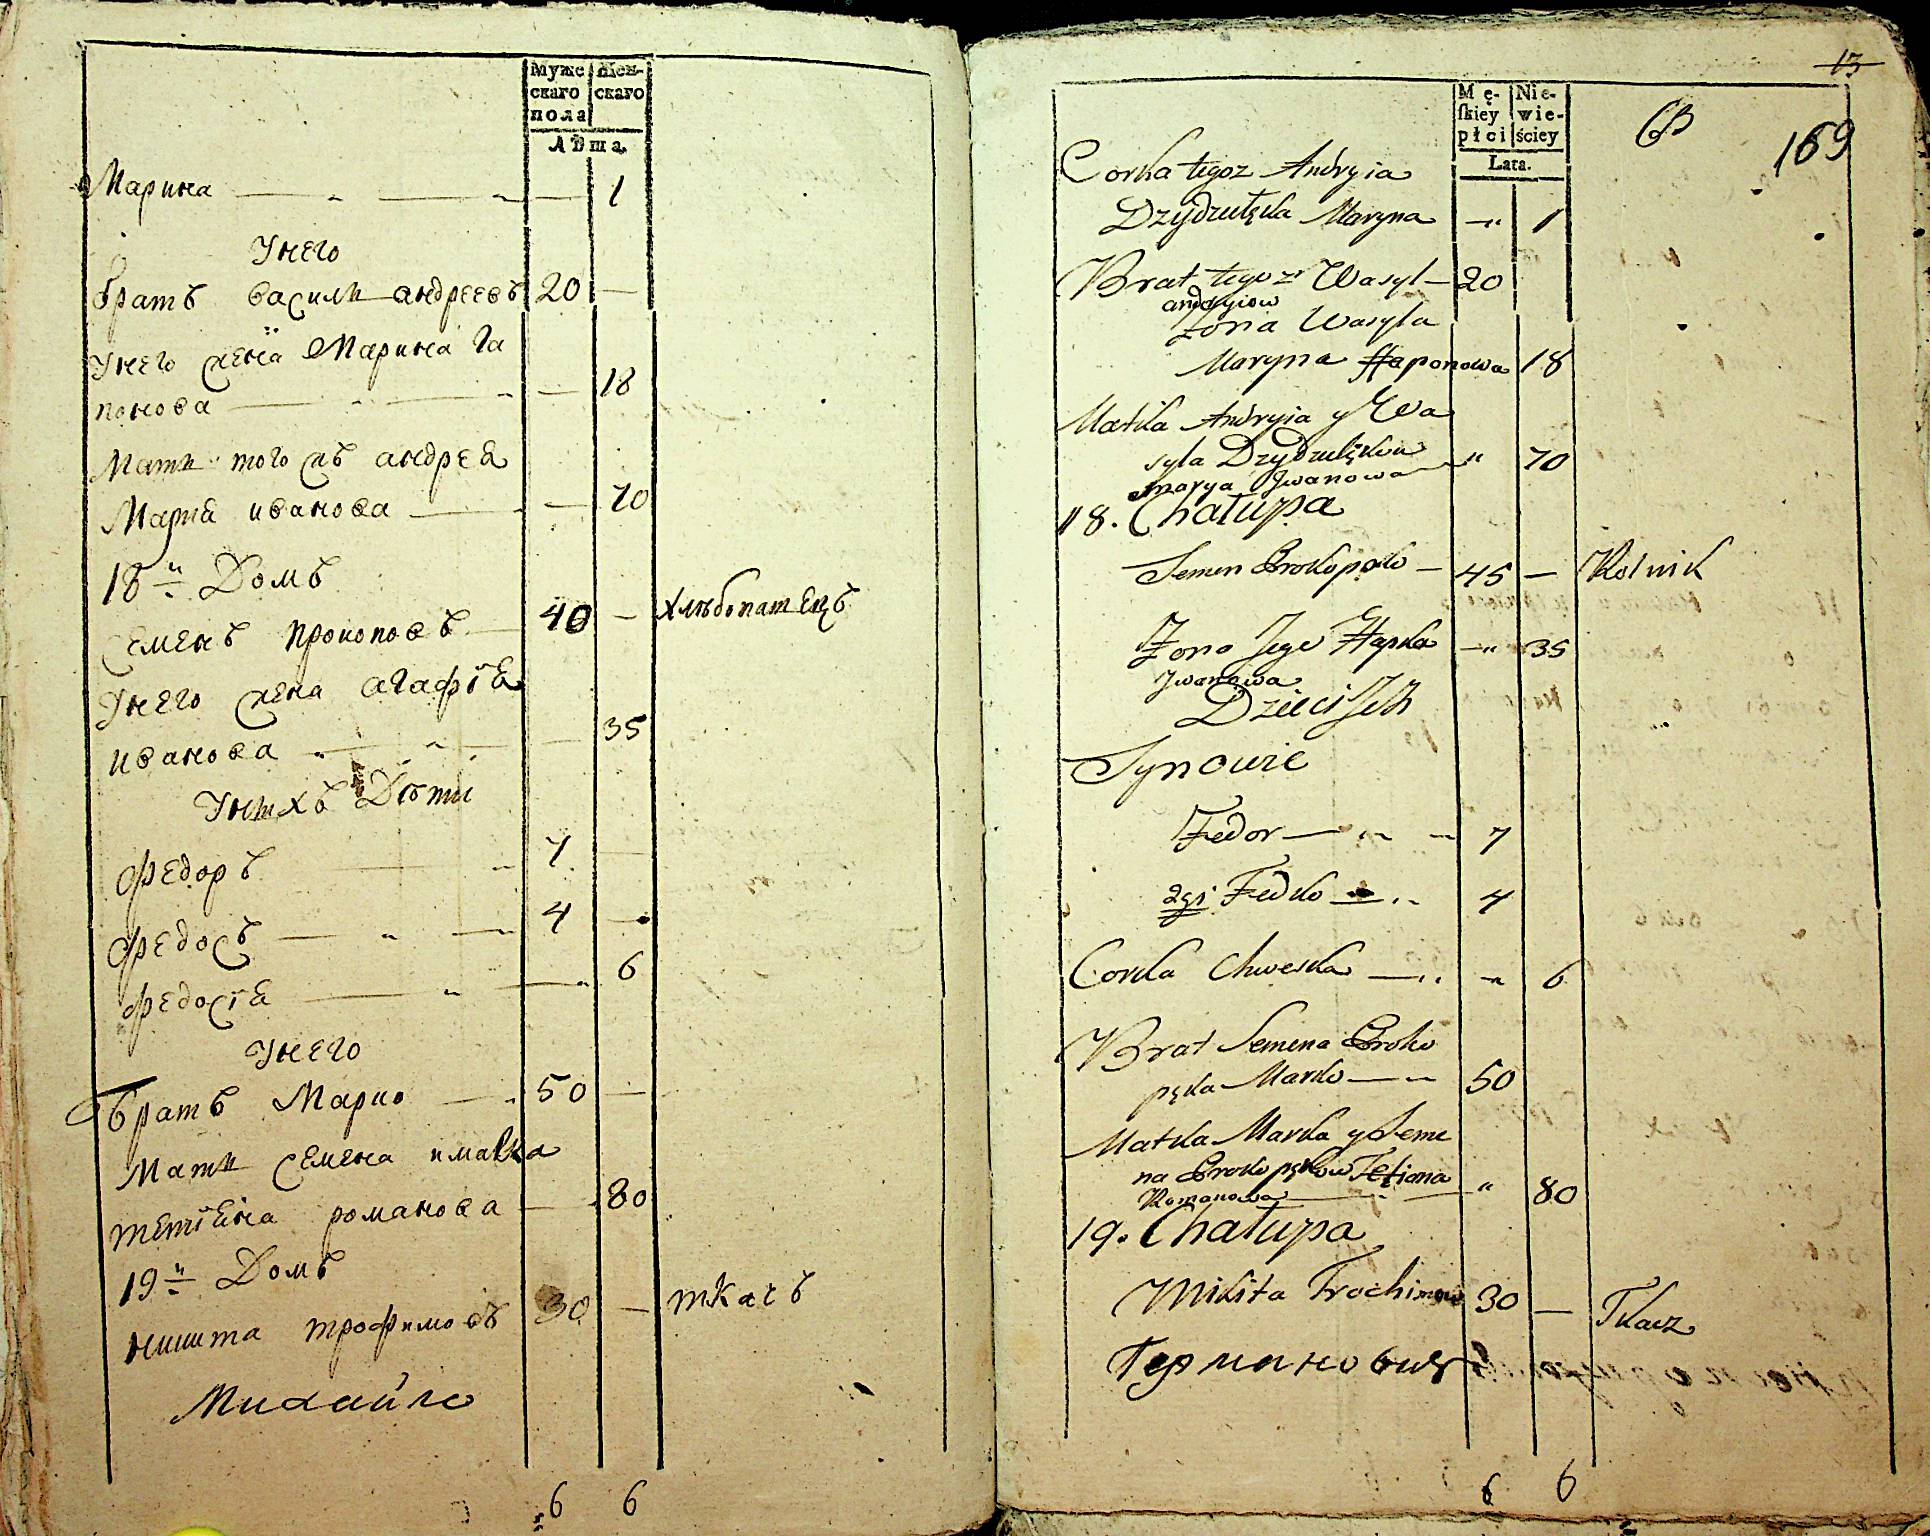 Муже Жен-
скаго скаго
пола
Лѣта.
Марина — „ — „ — 1
Унего
братъ васили андреевъ 20 —
Унего жена Марина Га
понова — „ — „ — 18
Мати тогожъ андрея
Маря иванова — — 70
18й Домъ
Семенъ прокоповъ — 40 — хлѣбопашецъ
Унего жена агафія
иванова — „ — — 35
Унихъ Дѣти
Федоръ — „ 7 —
Федосъ — „ — 4 —
Федосія — „ — 6
Унего
братъ Марко — 50 —
Мати Семена имарка
тетіяна романова — 80
19й Домъ
никита трофимовъ 30 — ткачъ
Михайло
6 6
13
Mę- Nie-
skiey wie-
płci ściey
Lata.
169
Corka tegoz Andryia
Dzydzulęka Maryna — „ 1
Brat tegoz Wasyl — 20
andryiow
Zona Wasyla
Maryna Haponowa 18
Matka Andryia y Wa
syla Dzydzulękow „ 70
marya Jwanowa
18. Chałupa
Semen Prokopęko — 45 — Rolnik
Zona Jego Hapka — „ 35
Jwanowa
Dzieci Jch
Synowie
Fedor — „ — 7
2gi Fedko — „ 4
Corka Chweska — „ „ 6
Brat Semena Proko
pęka Marko — „ 50
Matka Marka y Seme
na Prokopękow Tetiana „ 80
Romanowa
19. Chałupa
Mikita Trochimow 30 — Tkacz
Германовичъ
6 6